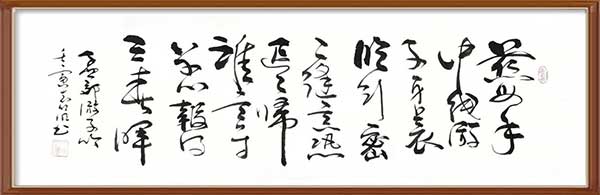 慈母手
中线游
子身上衣
临行密
密缝意恐
迟迟归
谁言寸
草心報得
三春暉
孟郊游子吟
壬寅